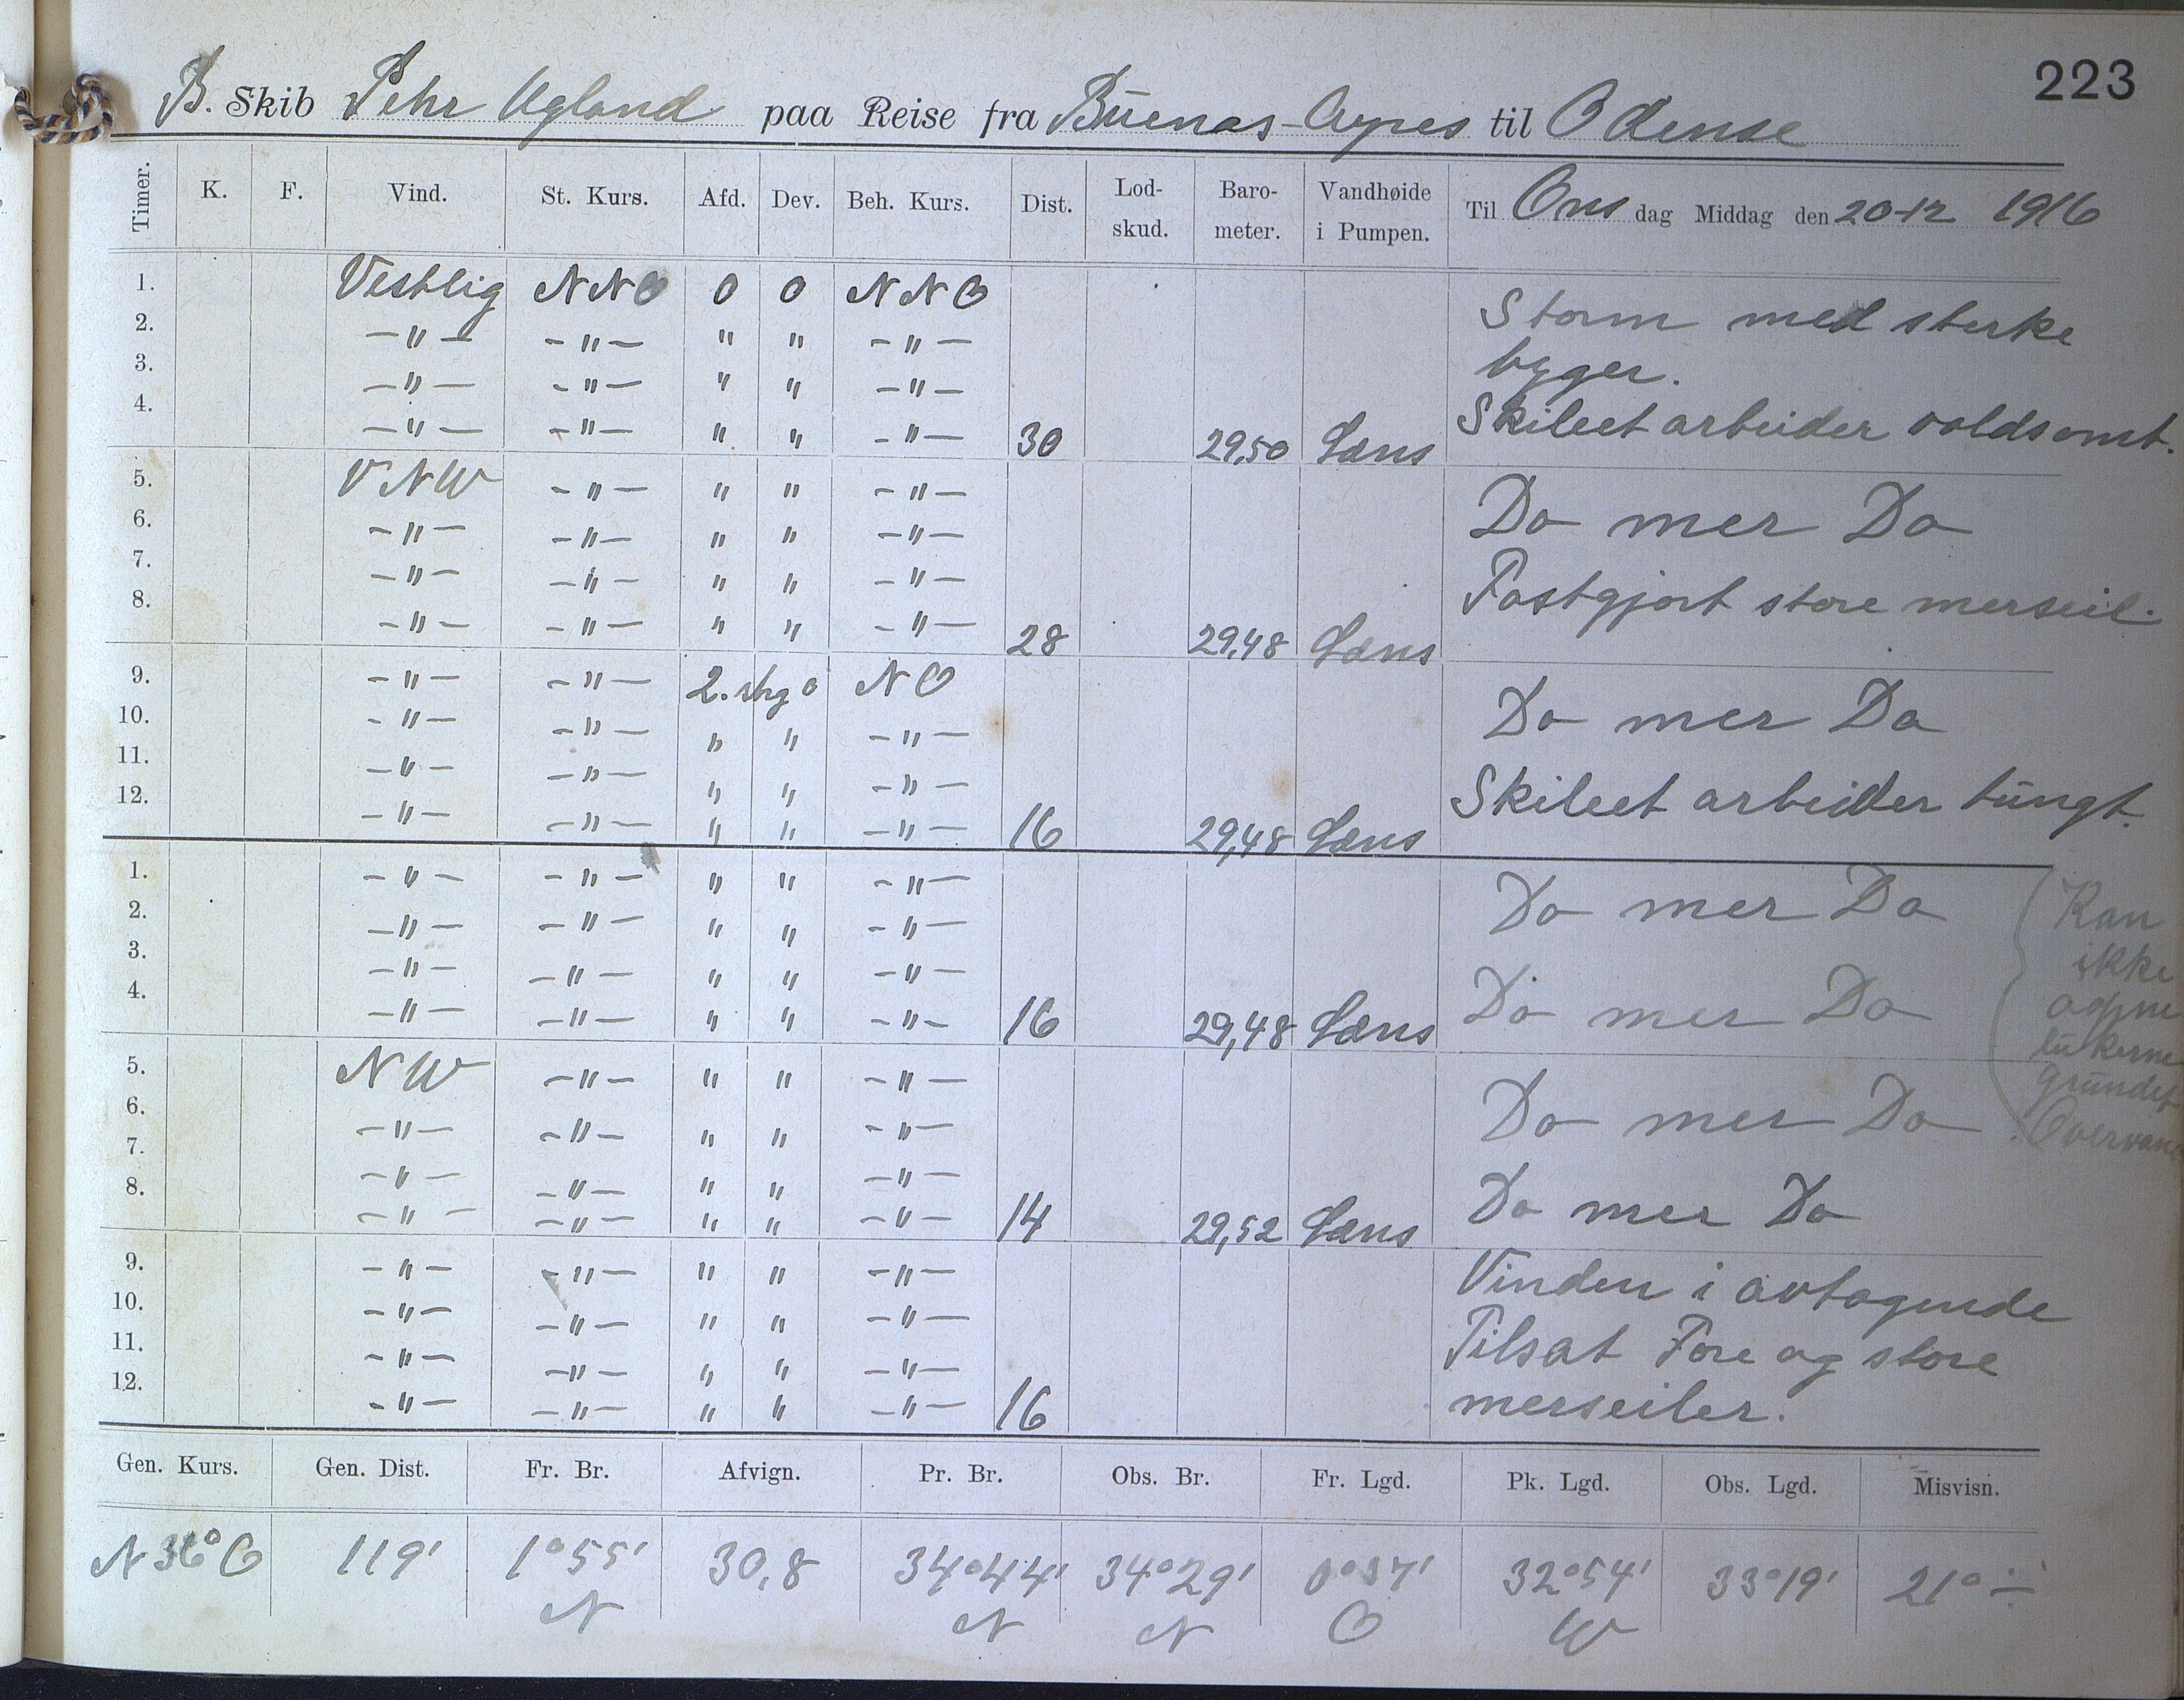 223
B. Skib Pehr Ugland paa Reise fra Buenos-Ayres til Odense
Timer. K. F. Vind. St. Kurs. Afd. Dev. Beh. Kurs. Dist. Lod-skud. Baro-meter. Vandhøide i Pumpen. Til Onsdag Middag den 20-12 1916
1. Vestlig NNO 0 0 NNO Storm med sterke
2. -"- -"- " " -"- byger.
3. -"- -"- " " -"-
4. -"- -"- " " -"- 30 29,50 Læns Skibet arbeider voldsomt.
5. VNW -"- " " -"- Do mer Do
6. -"- -"- " " -"-
7. -"- -"- " " -"- Fastgjort store merseil.
8. -"- -"- " " -"- 28 29,48 Læns
9. -"- -"- 2. strg 0 NO Do mer Do
10. -"- -"- " " -"-
11. -"- -"- " " -"- Skibet arbeider tungt.
12. -"- -"- " " -"- 16 29,48 Læns
1. -"- -"- " " -"- Do mer Do Kan
2. -"- -"- " " -"- ikke
3. -"- -"- " " -"- Do mer Do aapne
4. -"- -"- " " -"- 16 29,48 Læns lukerne
5. NW -"- " " -"- Do mer Do grundet
6. -"- -"- " " -"- Overvand
7. -"- -"- " " -"- Do mer Do
8. -"- -"- " " -"- 14 29,52 Læns
9. -"- -"- " " -"- Vinden i avtagende
10. -"- -"- " " -"- Tilsat Fore og store
11. -"- -"- " " -"- merseiler.
12. -"- -"- " " -"- 16
Gen. Kurs. Gen. Dist. Fr. Br. Afvign. Pr. Br. Obs. Br. Fr. Lgd. Pk. Lgd. Obs. Lgd. Misvisn.
N 36° O 119' 1°55' 30,8 34°44' 34°29' 0°37' 32°54' 33°19' 21° ÷
N N N O W